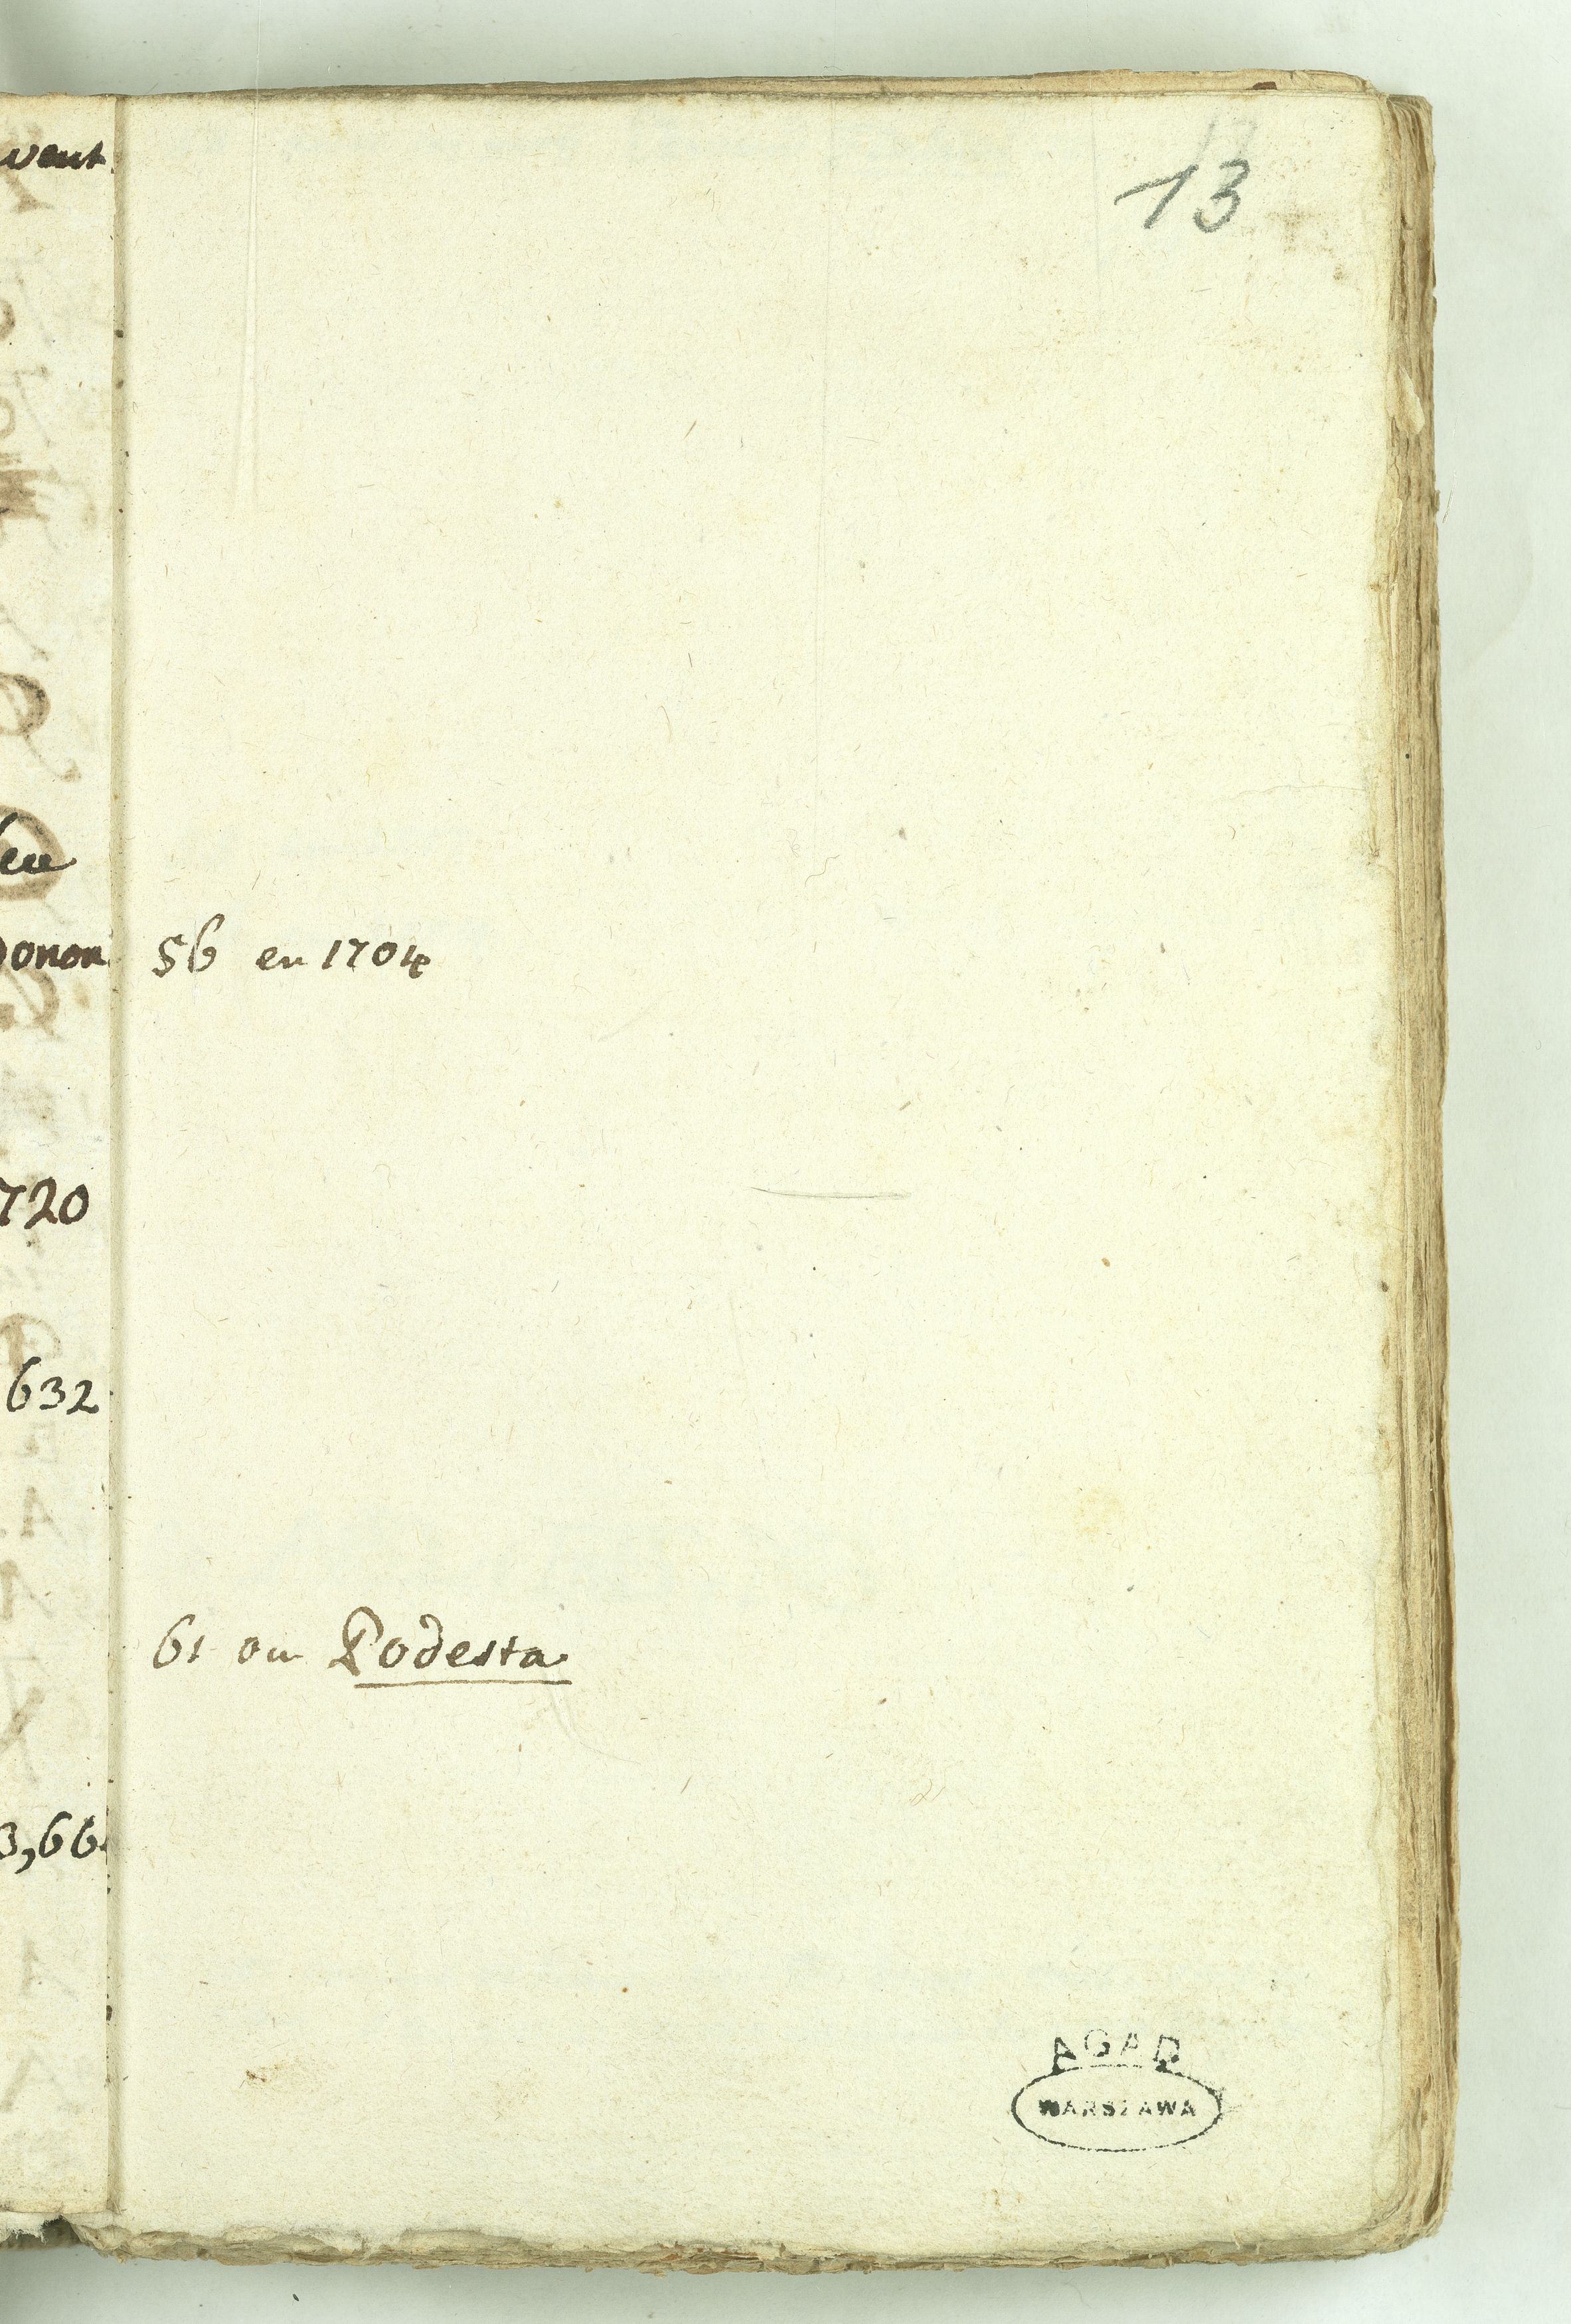 13
56 en 1704
720
632
61 ou Podesta
3,66
AGAD
WARSZAWA